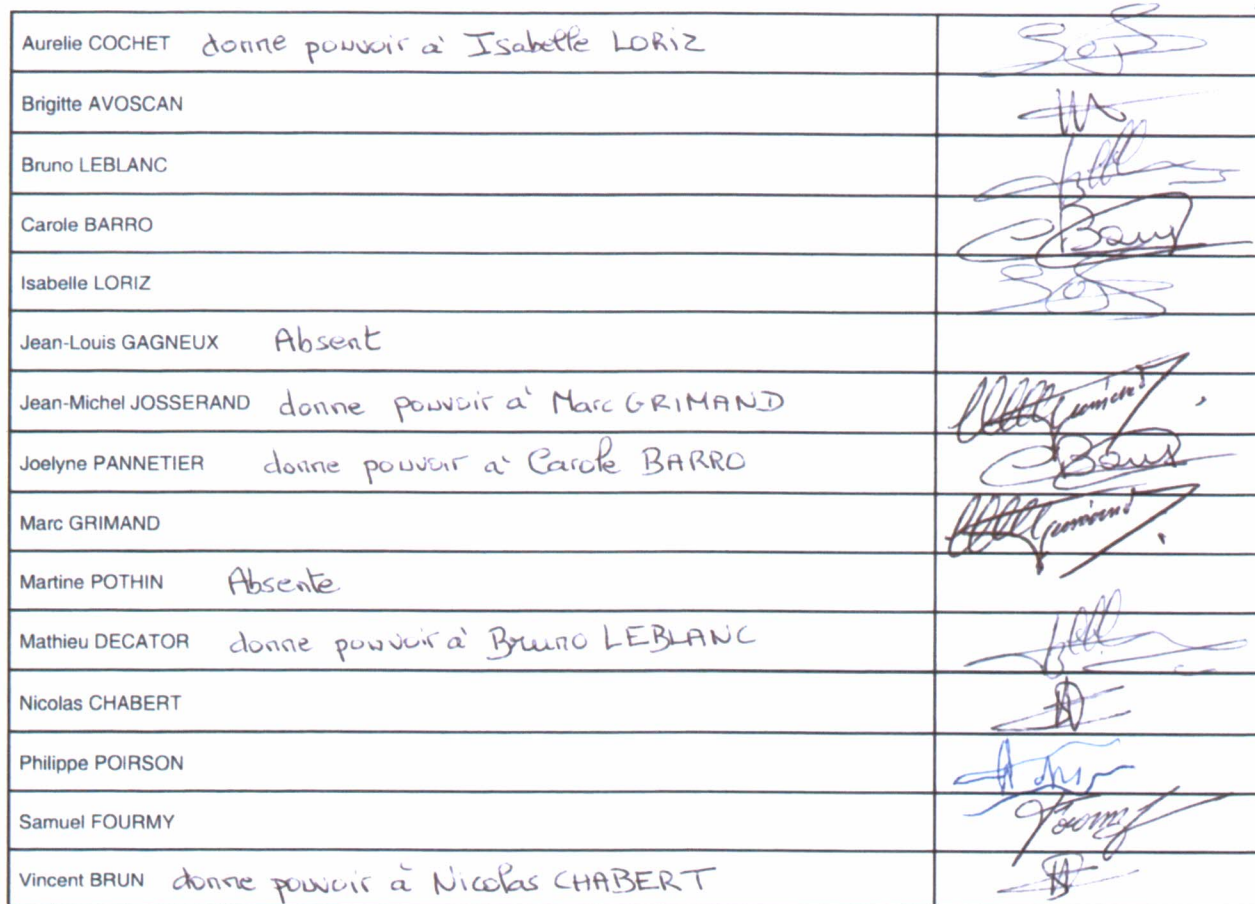 Aurelie COCHET donne pouvoir à Isabelle LORIZ
Brigitte AVOSCAN
Bruno LEBLANC
Carole BARRO
Isabelle LORIZ
Jean-Louis GAGNEUX Absent
Jean-Michel JOSSERAND donne pouvoir à Marc GRIMAND
Joelyne PANNETIER donne pouvoir à Carole BARRO
Marc GRIMAND
Martine POTHIN Absente
Mathieu DECATOR donne pouvoir à Bruno LEBLANC
Nicolas CHABERT
Philippe POIRSON
Samuel FOURMY
Vincent BRUN donne pouvoir à Nicolas CHABERT